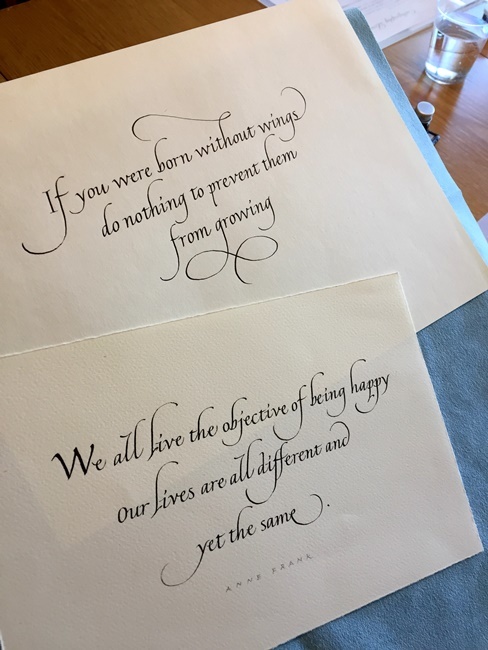 If you were born without wings
do nothing to prevent them
from growing
We all live the objective of being happy
our lives are all different and
yet the same.
ANNE FRANK